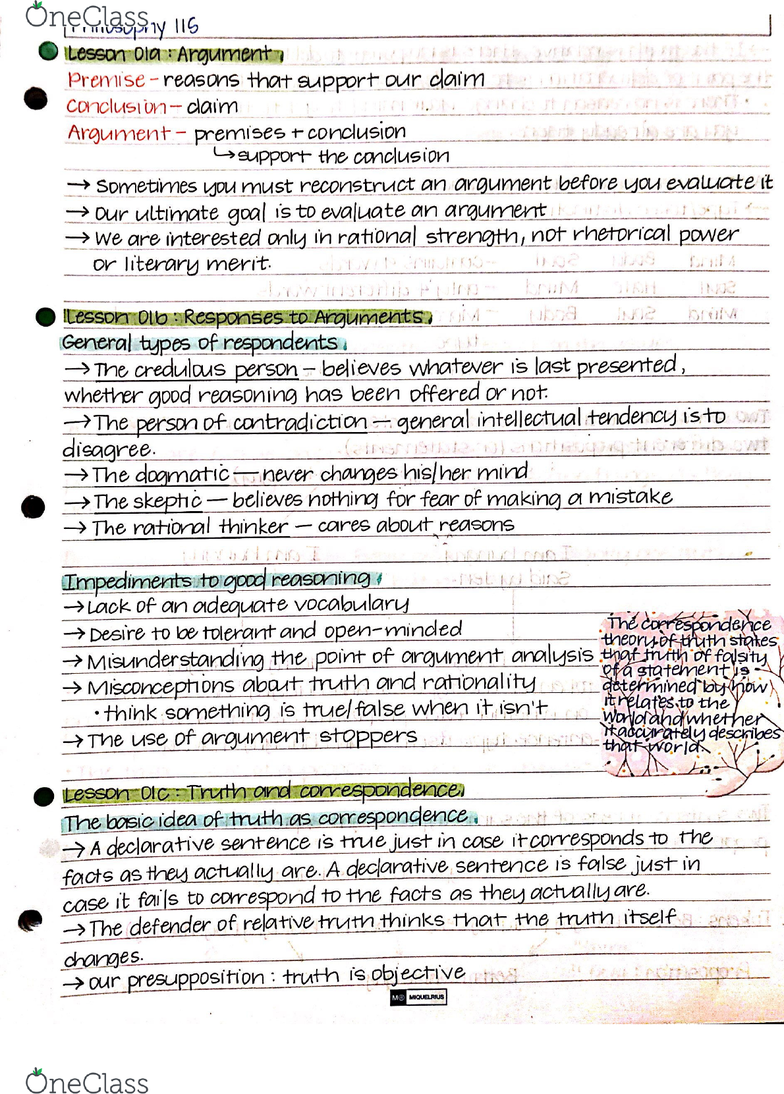 OneClass
Philosophy 115
Lesson 01a : Argument
Premise - reasons that support our claim
Conclusion - claim
Argument - premises + conclusion
↳ support the conclusion
→ Sometimes you must reconstruct an argument before you evaluate it
→ Our ultimate goal is to evaluate an argument
→ We are interested only in rational strength, not rhetorical power
or literary merit.
Lesson 01b : Responses to Arguments
General types of respondents
→ The credulous person - believes whatever is last presented,
whether good reasoning has been offered or not.
→ The person of contradiction - general intellectual tendency is to
disagree.
→ The dogmatic - never changes his/her mind
→ The skeptic - believes nothing for fear of making a mistake
→ The rational thinker - cares about reasons
Impediments to good reasoning
→ Lack of an adequate vocabulary
→ Desire to be tolerant and open-minded
→ Misunderstanding the point of argument analysis
→ Misconceptions about truth and rationality
• think something is true/false when it isn't
→ The use of argument stoppers
The correspondence
theory of truth states
that truth of falsity
of a statement is
determined by how
it relates to the
world and whether
it accurately describes
that world.
Lesson 01c : Truth and correspondence
The basic idea of truth as correspondence
→ A declarative sentence is true just in case it corresponds to the
facts as they actually are. A declarative sentence is false just in
case it fails to correspond to the facts as they actually are.
→ The defender of relative truth thinks that the truth itself
changes.
→ our presupposition : truth is objective
MIQUELRIUS
OneClass